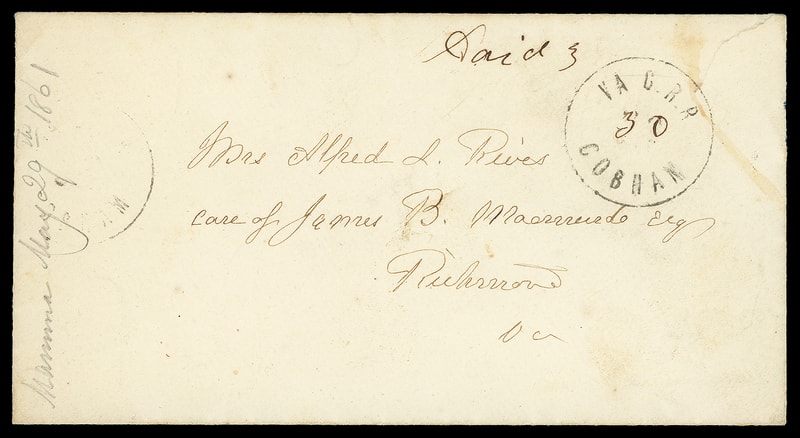 Paid 3
VA C.R.R
30
COBHAM
Mrs Alfred L. Rives
care of James B. Macmurdo Esq
Richmond
Va
Mamma May 29th 1861
M